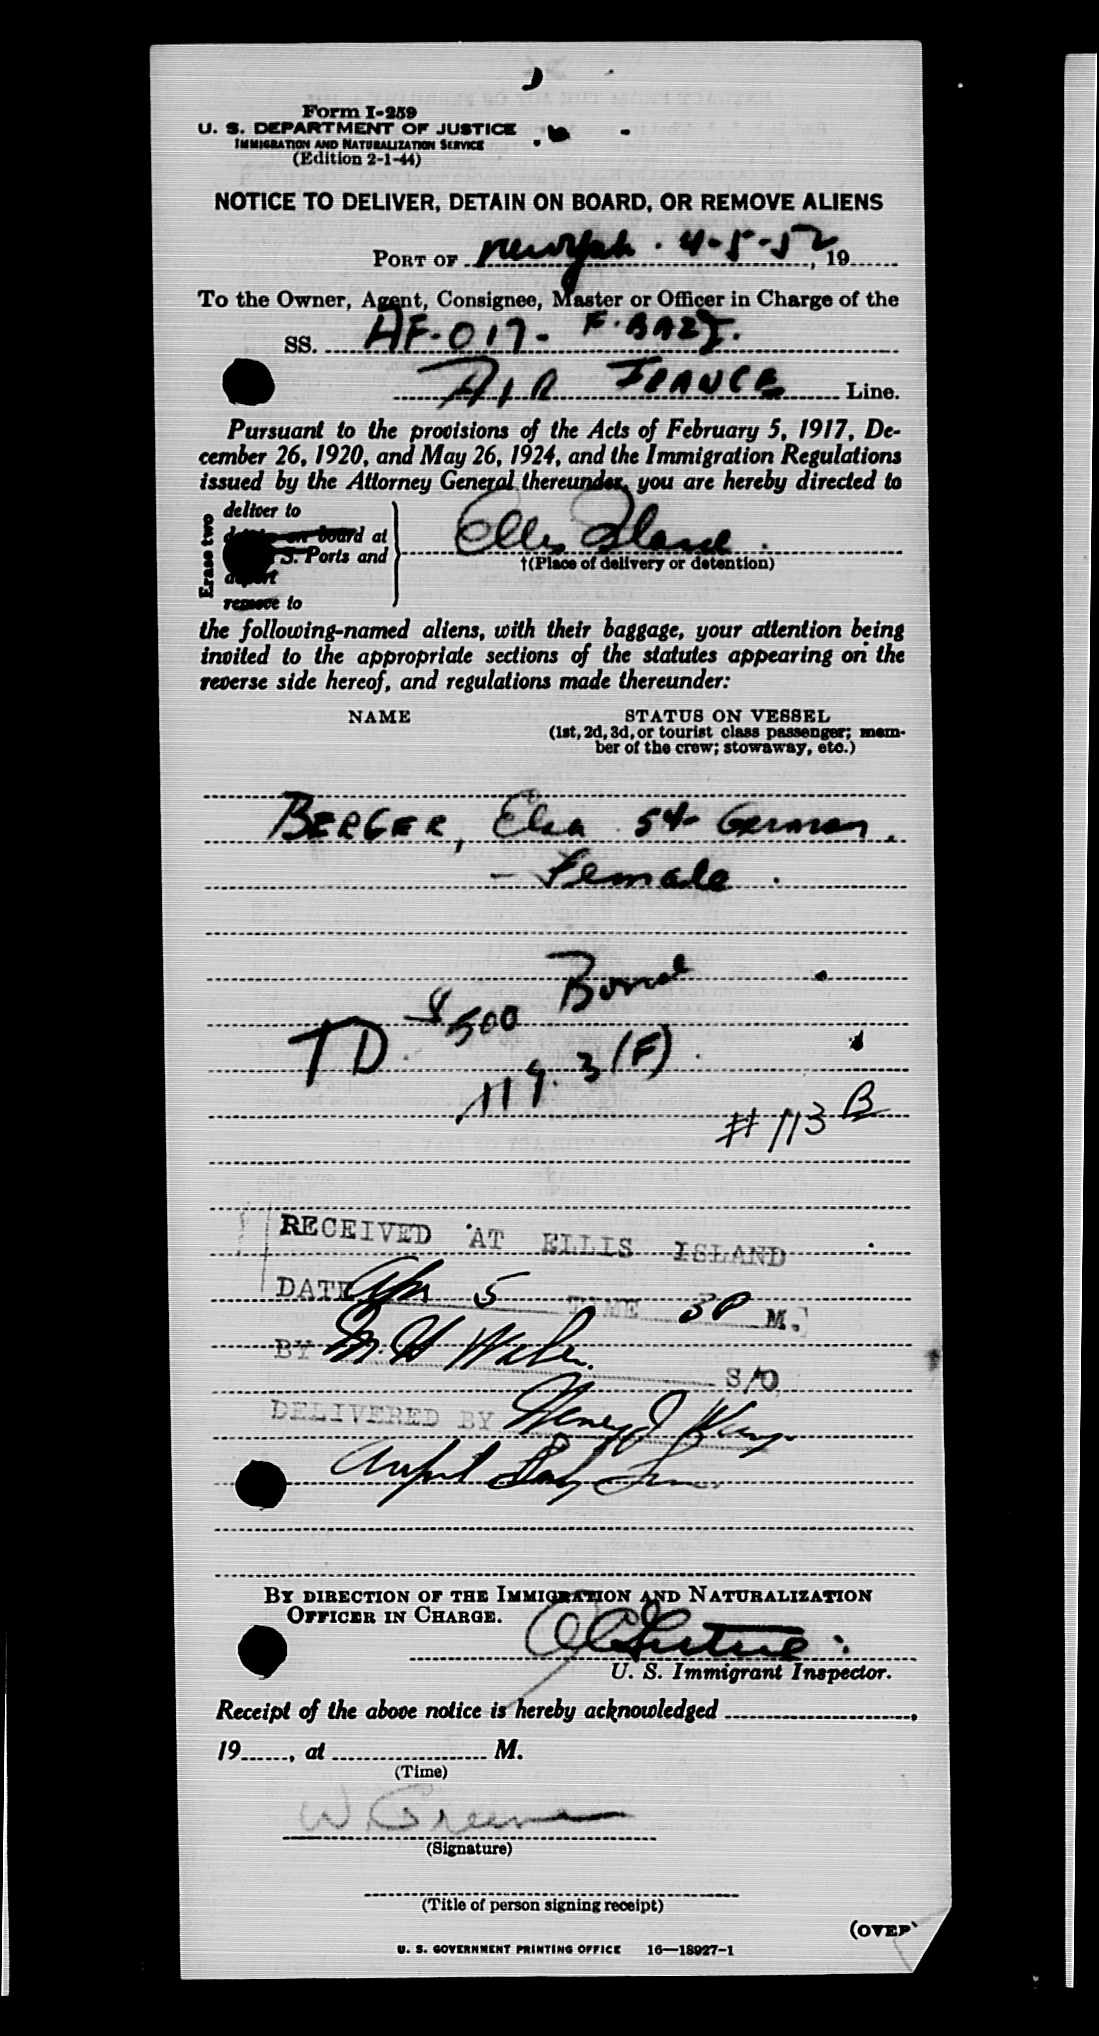 Form I-259
U. S. DEPARTMENT OF JUSTICE
IMMIGRATION AND NATURALIZATION SERVICE
(Edition 2-1-44)
NOTICE TO DELIVER, DETAIN ON BOARD, OR REMOVE ALIENS
PORT OF 4-5-52, 19
To the Owner, Agent, Consignee, Master or Officer in Charge of the
SS. AF-017-
AIR FRANCE Line.
Pursuant to the provisions of the Acts of February 5, 1917, De-
cember 26, 1920, and May 26, 1924, and the Immigration Regulations
issued by the Attorney General thereunder, you are hereby directed to
Erase two
deliver to
on board at
S. Ports and
remove to
Ellis Island
†(Place of delivery or detention)
the following-named aliens, with their baggage, your attention being
invited to the appropriate sections of the statutes appearing on the
reverse side hereof, and regulations made thereunder:
NAME STATUS ON VESSEL
(1st, 2d, 3d, or tourist class passenger; mem-
ber of the crew; stowaway, etc.)
BERGER, 54- German.
- Female.
$500 Bond
TD
119.3 (F).
#113 B
RECEIVED AT ELLIS ISLAND
DATE Apr 5 TIME M.
BY M. H S/O
DELIVERED BY Henry J
BY DIRECTION OF THE IMMIGRATION AND NATURALIZATION
OFFICER IN CHARGE.
U. S. Immigrant Inspector.
Receipt of the above notice is hereby acknowledged ,
19 , at M.
(Time)
W. Greene
(Signature)
(Title of person signing receipt)
(OVER
U. S. GOVERNMENT PRINTING OFFICE 16—18927-1